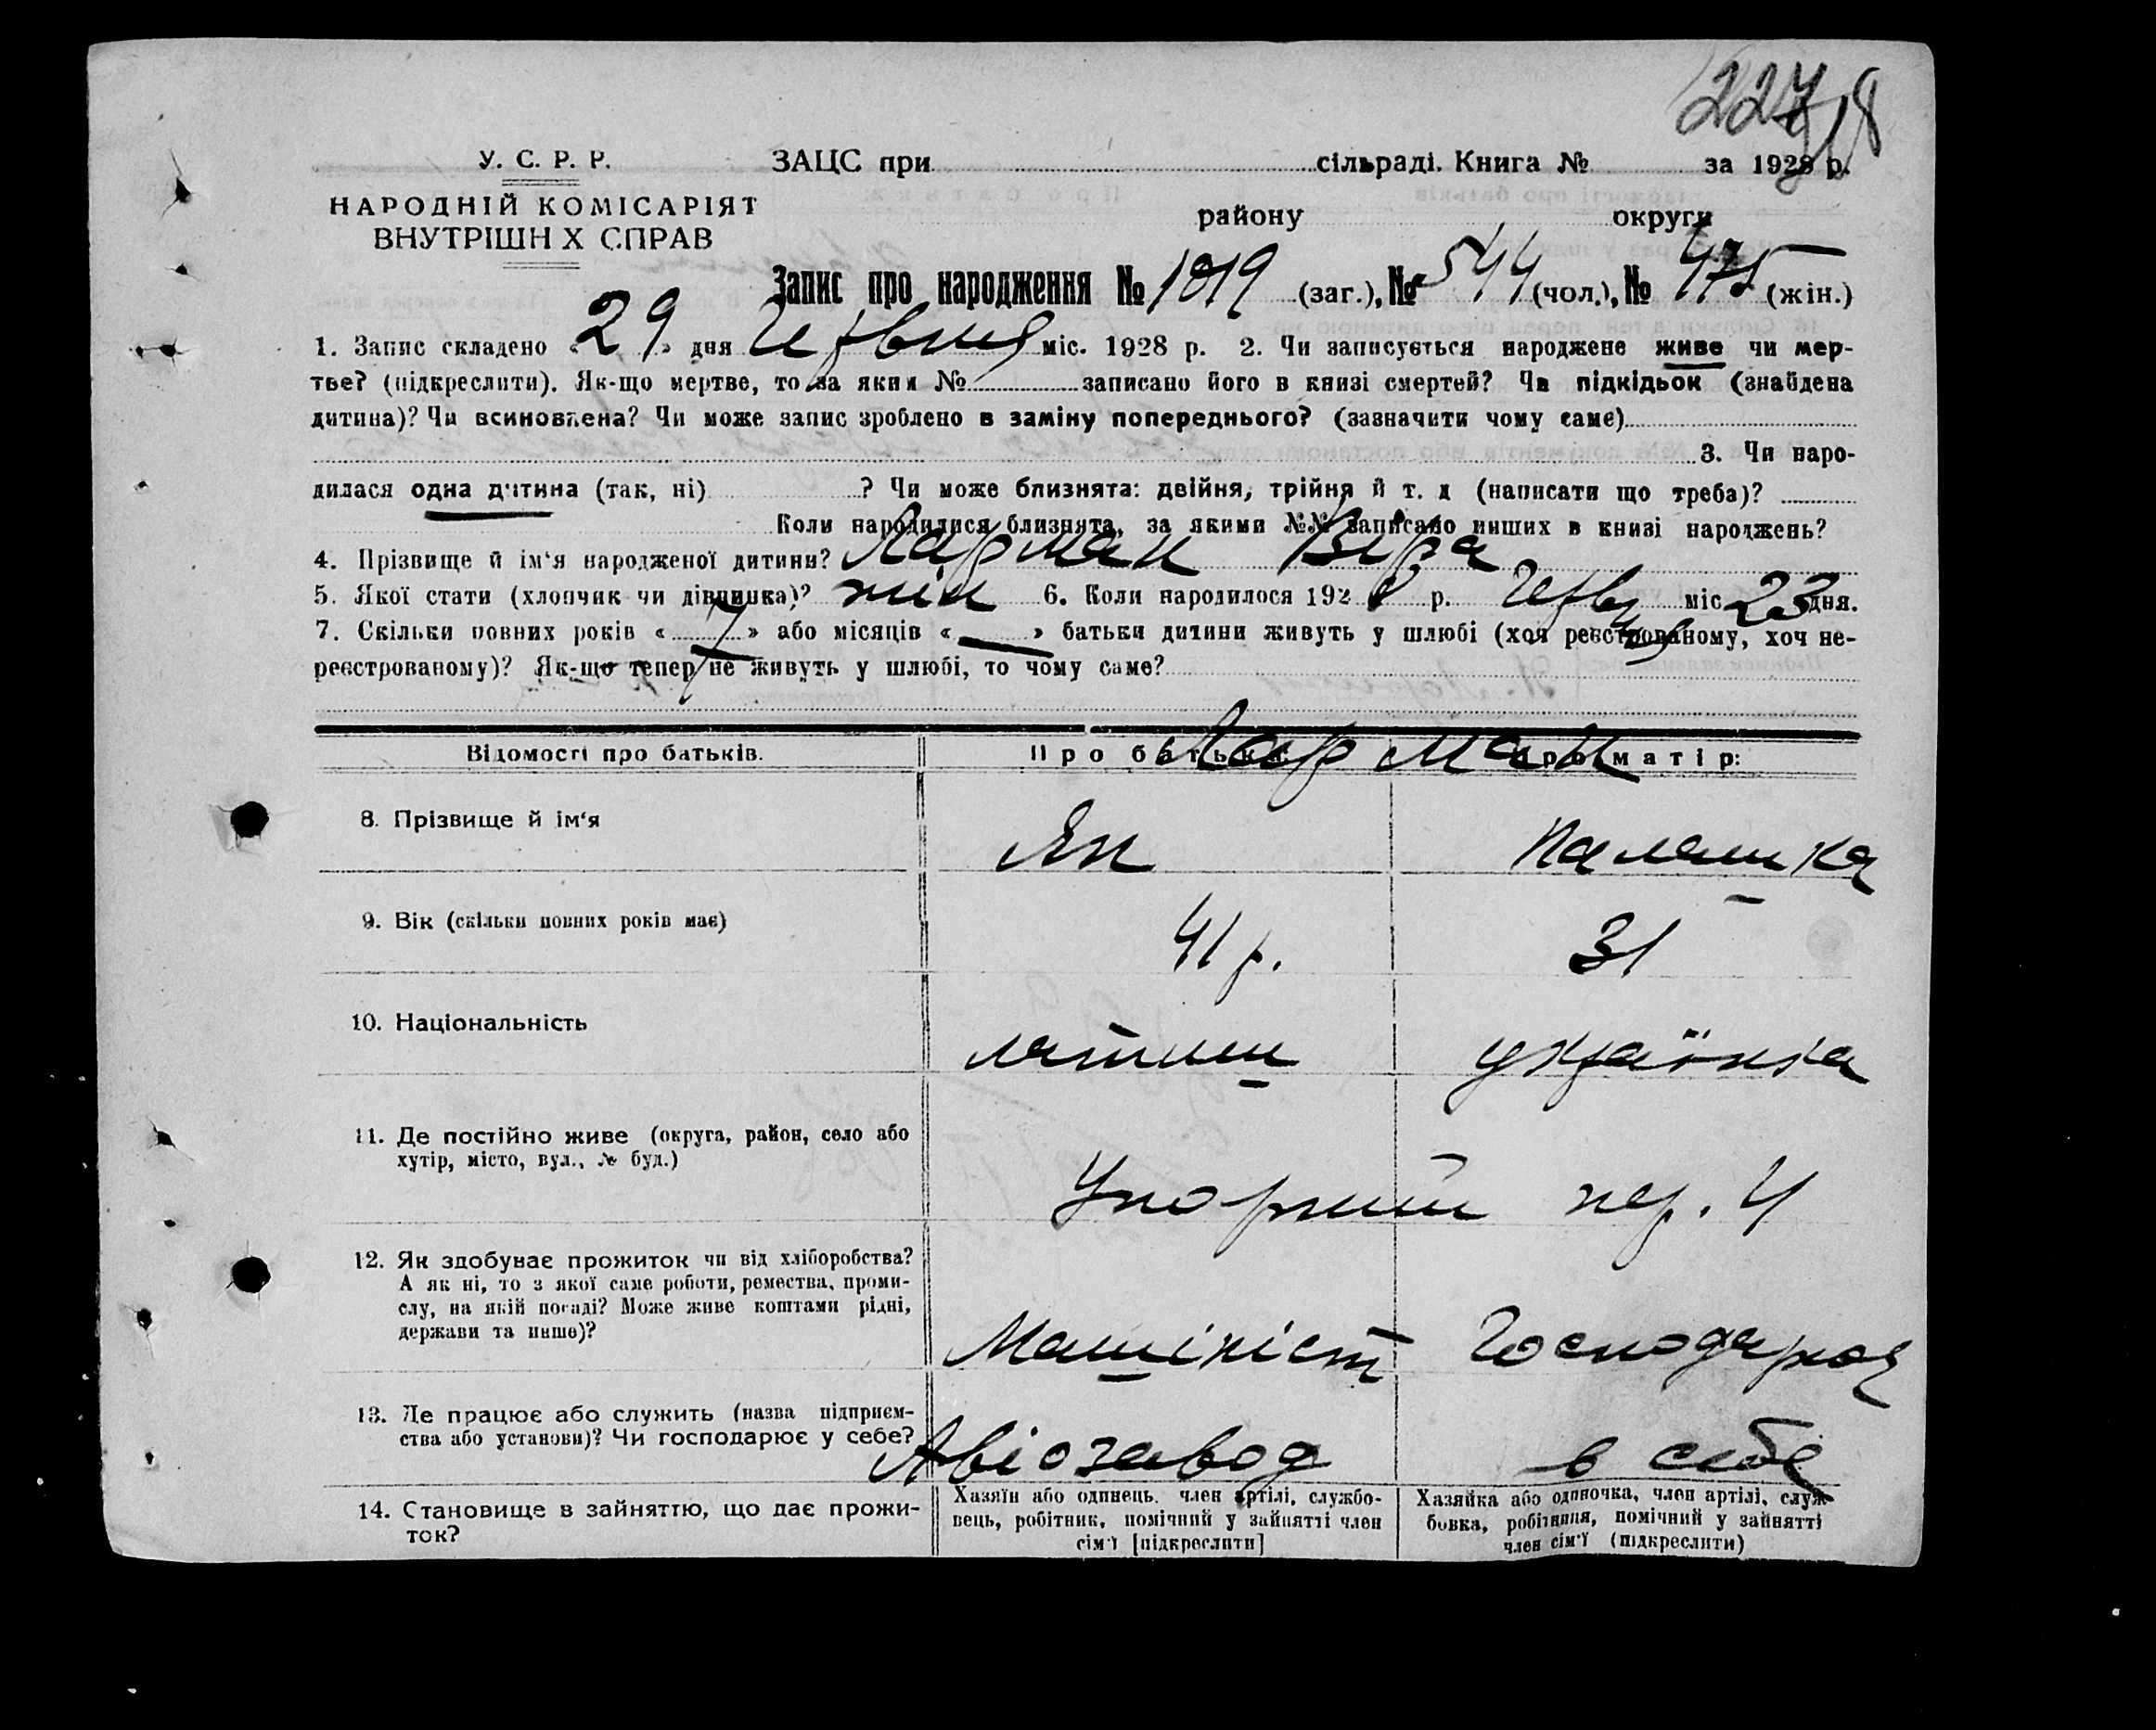 У. С. Р. Р.
НАРОДНІЙ КОМІСАРІЯТ
ВНУТРІШН Х СПРАВ
ЗАЦС при сільраді. Книга № за 1928 р.
району округи
Запис про народження № 1019 (заг.), № 544 (чол.), № 475 (жін.)
1. Запис складено «29» дня Червня міс. 1928 р. 2. Чи записується народжене живе чи мер-
тве? (підкреслити). Як-що мертве, то за яким № записано його в книзі смертей? Чи підкідьок (знайдена
дитина)? Чи всиновлена? Чи може запис зроблено в заміну попереднього? (зазначити чому саме)
3. Чи наро-
дилася одна дитина (так, ні) ? Чи може близнята: двійня, трійня й т. д (написати що треба)?
Коли народилися близнята, за якими №№ записано инших в книзі народжень?
4. Прізвище й ім‘я народженої дитини? Ларман Віра
5. Якої стати (хлопчик чи дівчинка)? жін 6. Коли народилося 1928 р. Червня міс 23 дня.
7. Скільки повних років «7» або місяців «—» батьки дитини живуть у шлюбі (хоч реєстрованому, хоч не-
реєстрованому)? Як-що тепер не живуть у шлюбі, то чому саме?
Відомості про батьків. Про батька: Про матір:
Ларман
8. Прізвище й ім‘я Ян Палашка
9. Вік (скільки повних років має) 41 р. 31
10. Національність латиш українка
11. Де постійно живе (округа, район, село або
хутір, місто, вул., № буд.)
Упорний пер. 4
12. Як здобуває прожиток чи від хліборобства?
А як ні, то з якої саме роботи, ремества, проми-
слу, на якій посаді? Може живе коштами рідні,
держави та инше)?
Машініст Господарка
13. Де працює або служить (назва підприєм-
ства або установи)? Чи господарює у себе?
Авіозавод в себе
14. Становище в зайняттю, що дає прожи-
ток?
Хазяїн або одинець, член артілі, службо-
вець, робітник, помічний у зайнятті член
сім‘ї [підкреслити]
Хазяйка або одиночка, член артілі, служ-
бовка, робітниця, помічний у зайнятті
член сім‘ї (підкреслити)